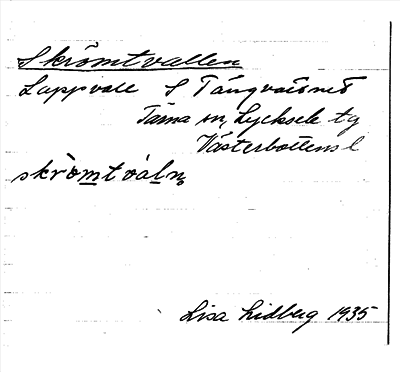 Skrömtvallen
Lappvall S Tängvattnet
Tärna sn, Lycksele tg
Västerbottens l
skròm̲tvál̲n̥
Lisa Lidberg 1935